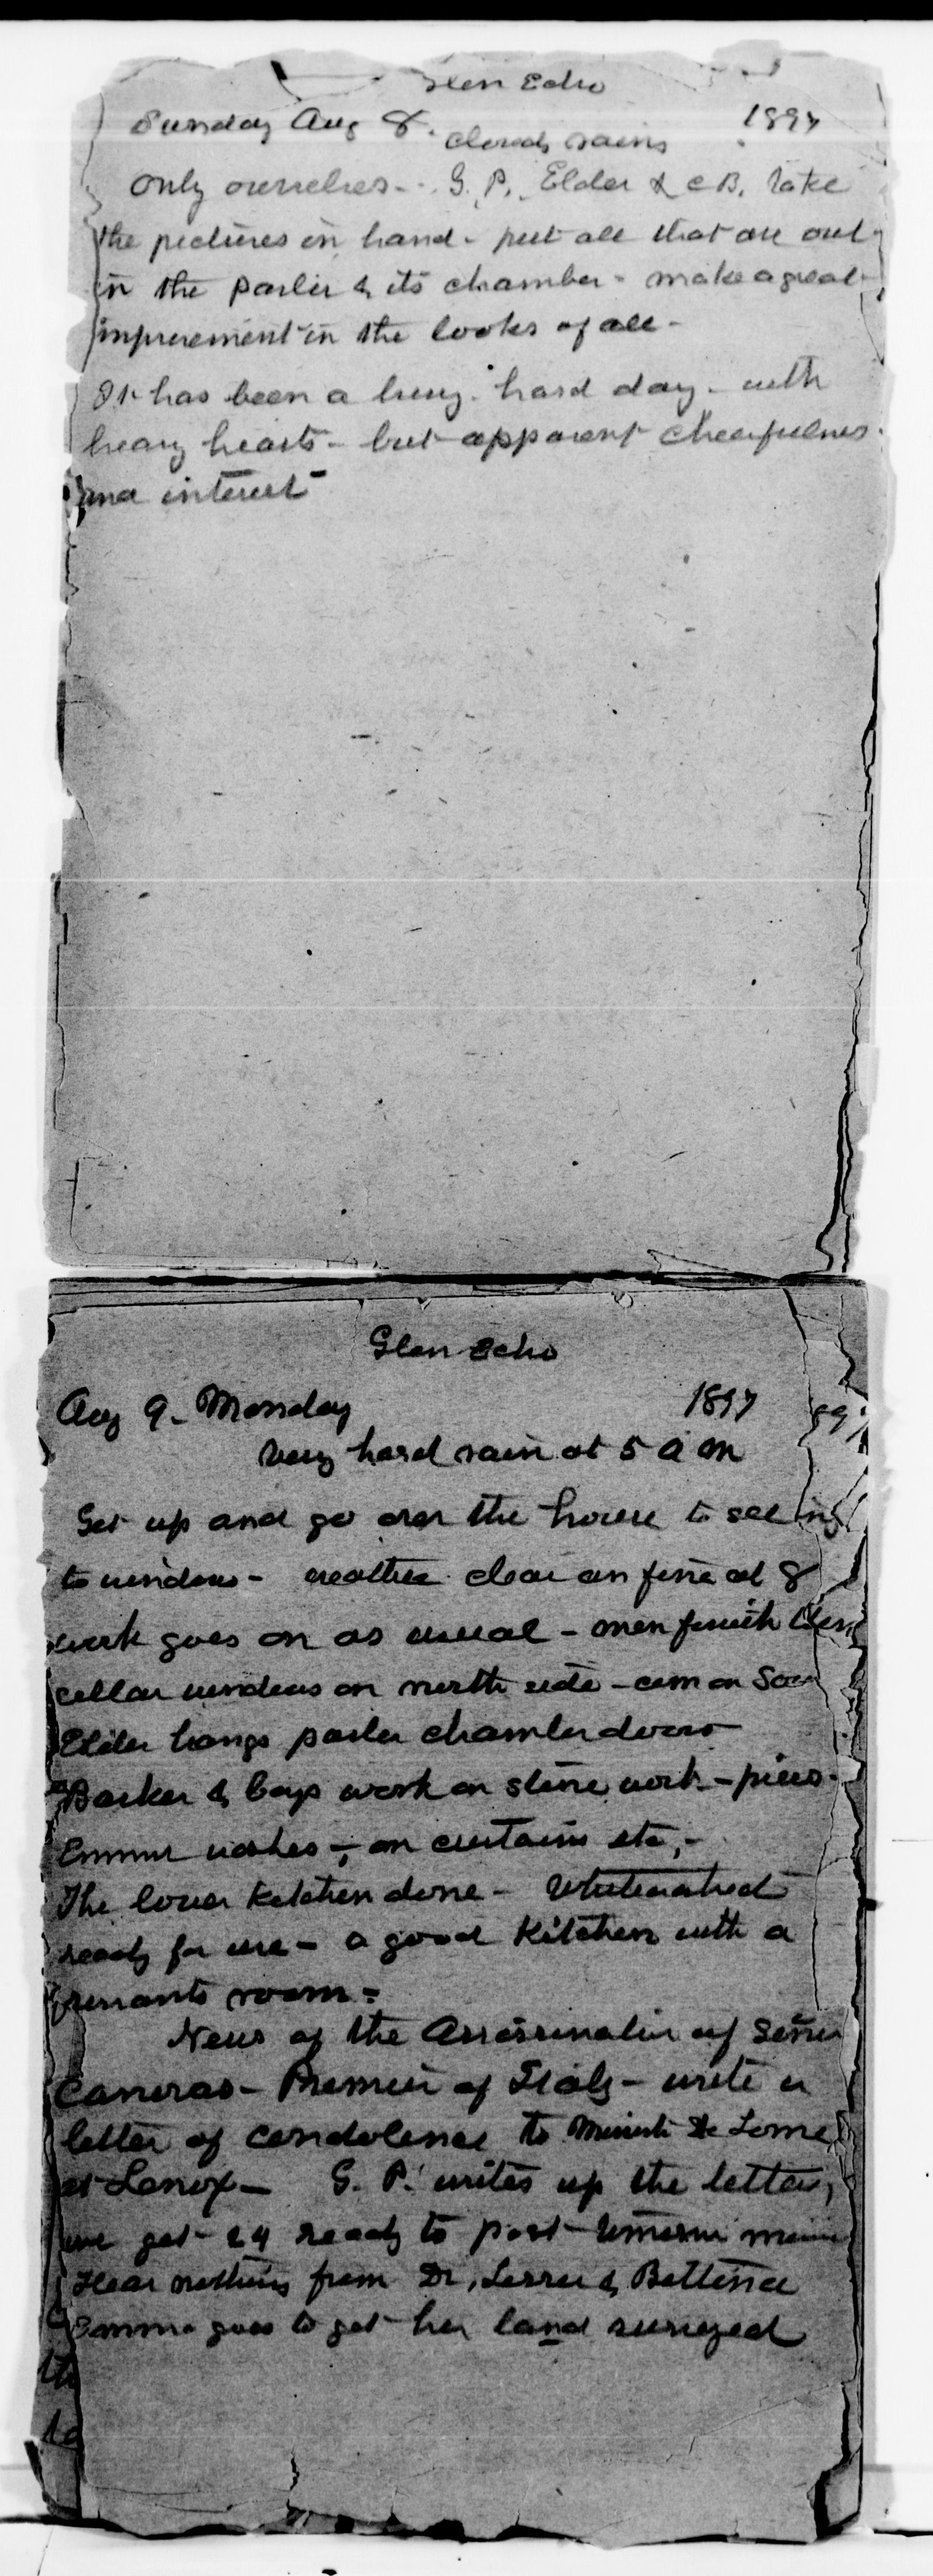 Glen Echo
Sunday Aug 8. 1897
cloudy rains
Only ourselves - G. P., Elder & C B, take
the pictures in hand - put all that are out
in the parlor & its chamber - make a great
improvement in the looks of all -
It has been a busy hard day - with
heavy hearts - but apparent cheerfulness
and interest -
Glen Echo
Aug 9 - Monday 1897
Very hard rain at 5 a m
Get up and go over the house to see
to windows - weather clear an fine at 8
work goes on as usual - men finish
cellar windows on north side - com on Sou
Elder hangs parlor chamber doors
Barker & boys work on stone work - piers -
Emma washes - on curtains etc, -
The lower Kitchen done - Whitewashed
ready for use - a good Kitchen with a
servants room -
News of the Assassination of Señor
Canovas - Premier of Italy - write a
letter of condolence to Minist De Lome
at Lenox - G. P. writes up the letters,
we get 24 ready to post tomorrow
Hear nothing from Dr, & Bettina
Emma goes to get her land surveyed